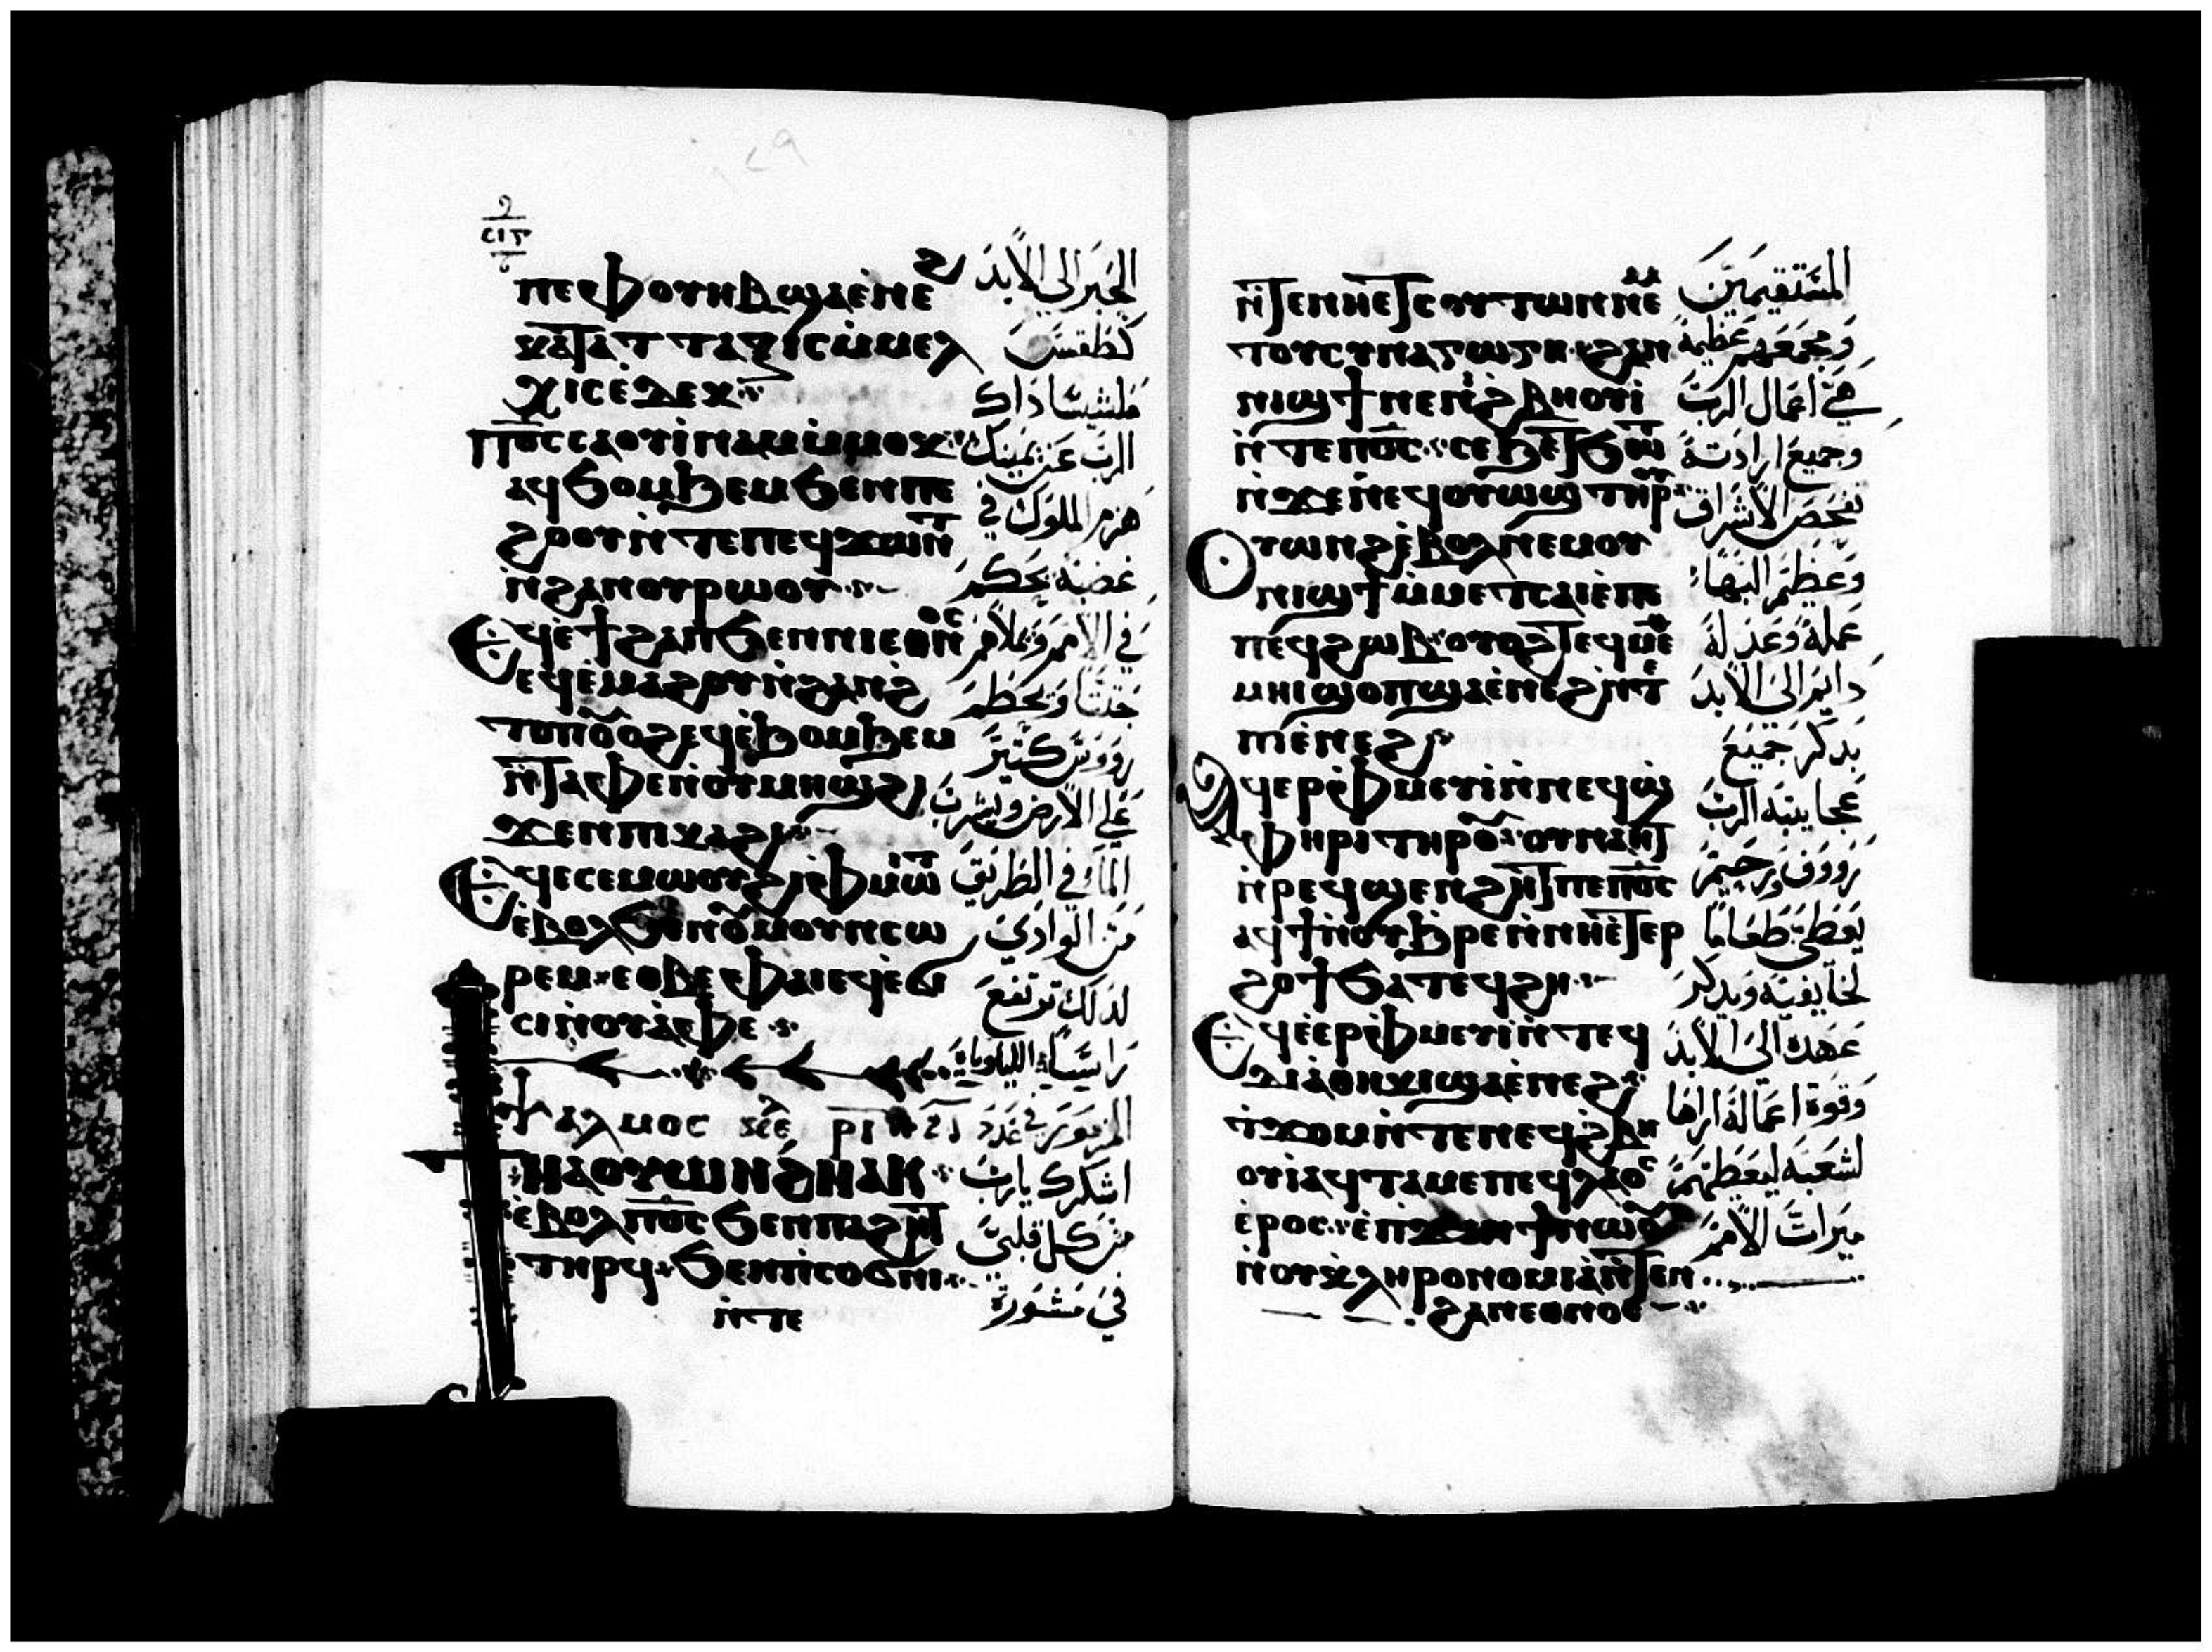 ⲡⲉⲫⲟⲩⲏⲃϣⲁⲉ̀ⲛⲉϩ
ⲕⲁϯⲁⲧⲧⲁⲝⲓⲥⲙ̀ⲙⲉⲗ
ⲭⲓⲥⲉⲇⲉⲕ
ⲡϭⲟⲓⲥⲥⲁⲟⲩⲓ̀ⲛⲁⲙⲙ̀ⲙⲟⲕ
ⲁϥϧⲟⲙϧⲉⲙϧⲉⲛⲡⲉ
ϩⲟⲟⲩⲛ̀ⲧⲉⲡⲉϥϫⲱⲛⲧ
ⲛ̀ϩⲁⲛⲟⲩⲣⲱⲟⲩ
ⲉϥⲉ̀ϯϩⲁⲡϧⲉⲛⲛⲓⲉⲑⲛⲟⲥ
ⲉϥⲉ̀ⲙⲁϩⲟⲩⲛ̀ϩⲁⲛϩ
ⲉϥⲉ̀ϧⲟⲙϧⲉⲙ
ⲛ̀ϯⲁⲫⲉⲛⲟⲩⲙⲏϣϩⲓ
ϫⲉⲛⲡⲓⲕⲁϩⲓ
ⲉϥⲉⲥⲉⲙⲱⲟⲩϩⲓⲫⲙⲱⲓⲧ
ⲉ̀ⲃⲟⲗϧⲉⲛⲟⲩⲙⲟⲩⲛⲥⲱ
ⲣⲉⲙ ⲉⲑⲃⲉⲫⲁⲓⲉϥⲉ̀ϭⲓ
ⲥⲓⲛⲟⲩⲁ̀ⲫⲉ
ⲯⲁⲗⲙⲟⲥ
ϯⲛⲁⲟⲩⲱⲛϩⲛⲁⲕ
ⲉ̀ⲃⲟⲗⲡϭⲟⲓⲥϧⲉⲛⲡⲁϩⲏⲧ
ⲧⲏⲣϥ ϧⲉⲛⲡⲥⲟϭⲛⲓ
ⲛ̀ⲧⲉ
الحبر الى الابد
كطقس
ملشيساداك
الرب عن يمينك
هزم الملوك في
غضبه يحكم
في الامم ويملاهم
جثثا ويحطم
رووس كثير
على الارض ويشرب
الماء في الطريق
من الوادي
لذلك ترتفع
راسا الليلوياه
المزمور في عدد
اشكرك يارب
من كل قلبي
في مشورة
ⲛ̀ϯⲉⲛⲛⲏⲉ̀ϯⲥⲟⲩⲧⲱⲛⲛⲉⲙ
ⲧⲟⲩⲥⲩⲛⲁⲅⲱⲅⲏ ϩⲁⲛ
ⲛⲓϣϯⲛⲉⲛϩⲃⲏⲟⲩⲓ
ⲛ̀ⲧⲉⲡϭⲟⲓⲥ ⲥⲉϧⲉϯϧⲱⲧ
ⲛ̀ϫⲉⲛⲉϥⲟⲩⲱϣⲧⲏⲣⲟⲩ
ⲟⲩⲱⲛϩⲉ̀ⲃⲟⲗⲛⲉⲙⲟⲩ
ⲛⲓϣϯⲙ̀ⲙⲉⲧⲥⲁⲓⲉ̀ⲡⲉ
ⲡⲉϥϩⲱⲃ ⲟⲩⲟϩϯⲉϥⲙⲉ
ⲙⲏⲓϣⲟⲡϣⲁⲉ̀ⲛⲉϩⲛ̀ⲧⲉ
ⲡⲓⲉ̀ⲛⲉϩ
ⲁϥⲉⲣⲫⲙⲉⲩⲓⲛ̀ⲛⲉϥϣ
ⲫⲏⲣⲓⲧⲏⲣⲟⲩ ⲟⲩⲛⲁⲏϯ
ⲛ̀ⲣⲉϥϣⲉⲛϩⲏϯⲡⲉⲡϭⲟⲓⲥ
ⲁϥϯⲛⲟⲩϧⲣⲉⲛ̀ⲛⲏⲉ̀ϯⲉⲣ
ϩⲟϯϧⲁⲧⲉϥϩⲏ
ⲉϥⲉ̀ⲉⲣⲫⲙⲉⲩⲓⲛ̀ⲧⲉϥ
ⲇⲓⲁⲑⲏⲕⲓϣⲁⲉ̀ⲛⲉϩ
ⲧ̀ϫⲟⲙⲛ̀ⲧⲉⲛⲉϥϩⲃⲏ
ⲟⲩⲓⲁϥⲧⲁⲙⲉⲡⲉϥⲗⲁⲟⲥ
ⲉ̀ⲣⲟⲥ ⲉ̀ⲡϫⲓⲛϯⲛⲱⲟⲩ
ⲛ̀ⲟⲩⲕⲗⲏⲣⲟⲛⲟⲙⲓⲁⲛ̀ϯⲉⲛ
ϩⲁⲛⲉⲑⲛⲟⲥ
المستقيمين
ومجمعهم عظيمة
هي اعمال الرب
وجميع ارادته
تفحص الاشراق
وعظيم البهاء
عمله وعدله
دايم الى الابد
يذكر جميع
عجايبه الرب
رووف ورحيم
يعطي طعاما
لخايفيه ويذكر
عهده الى الابد
وقوة اعماله اراها
لشعبه ليعطيهم
ميراث الامم